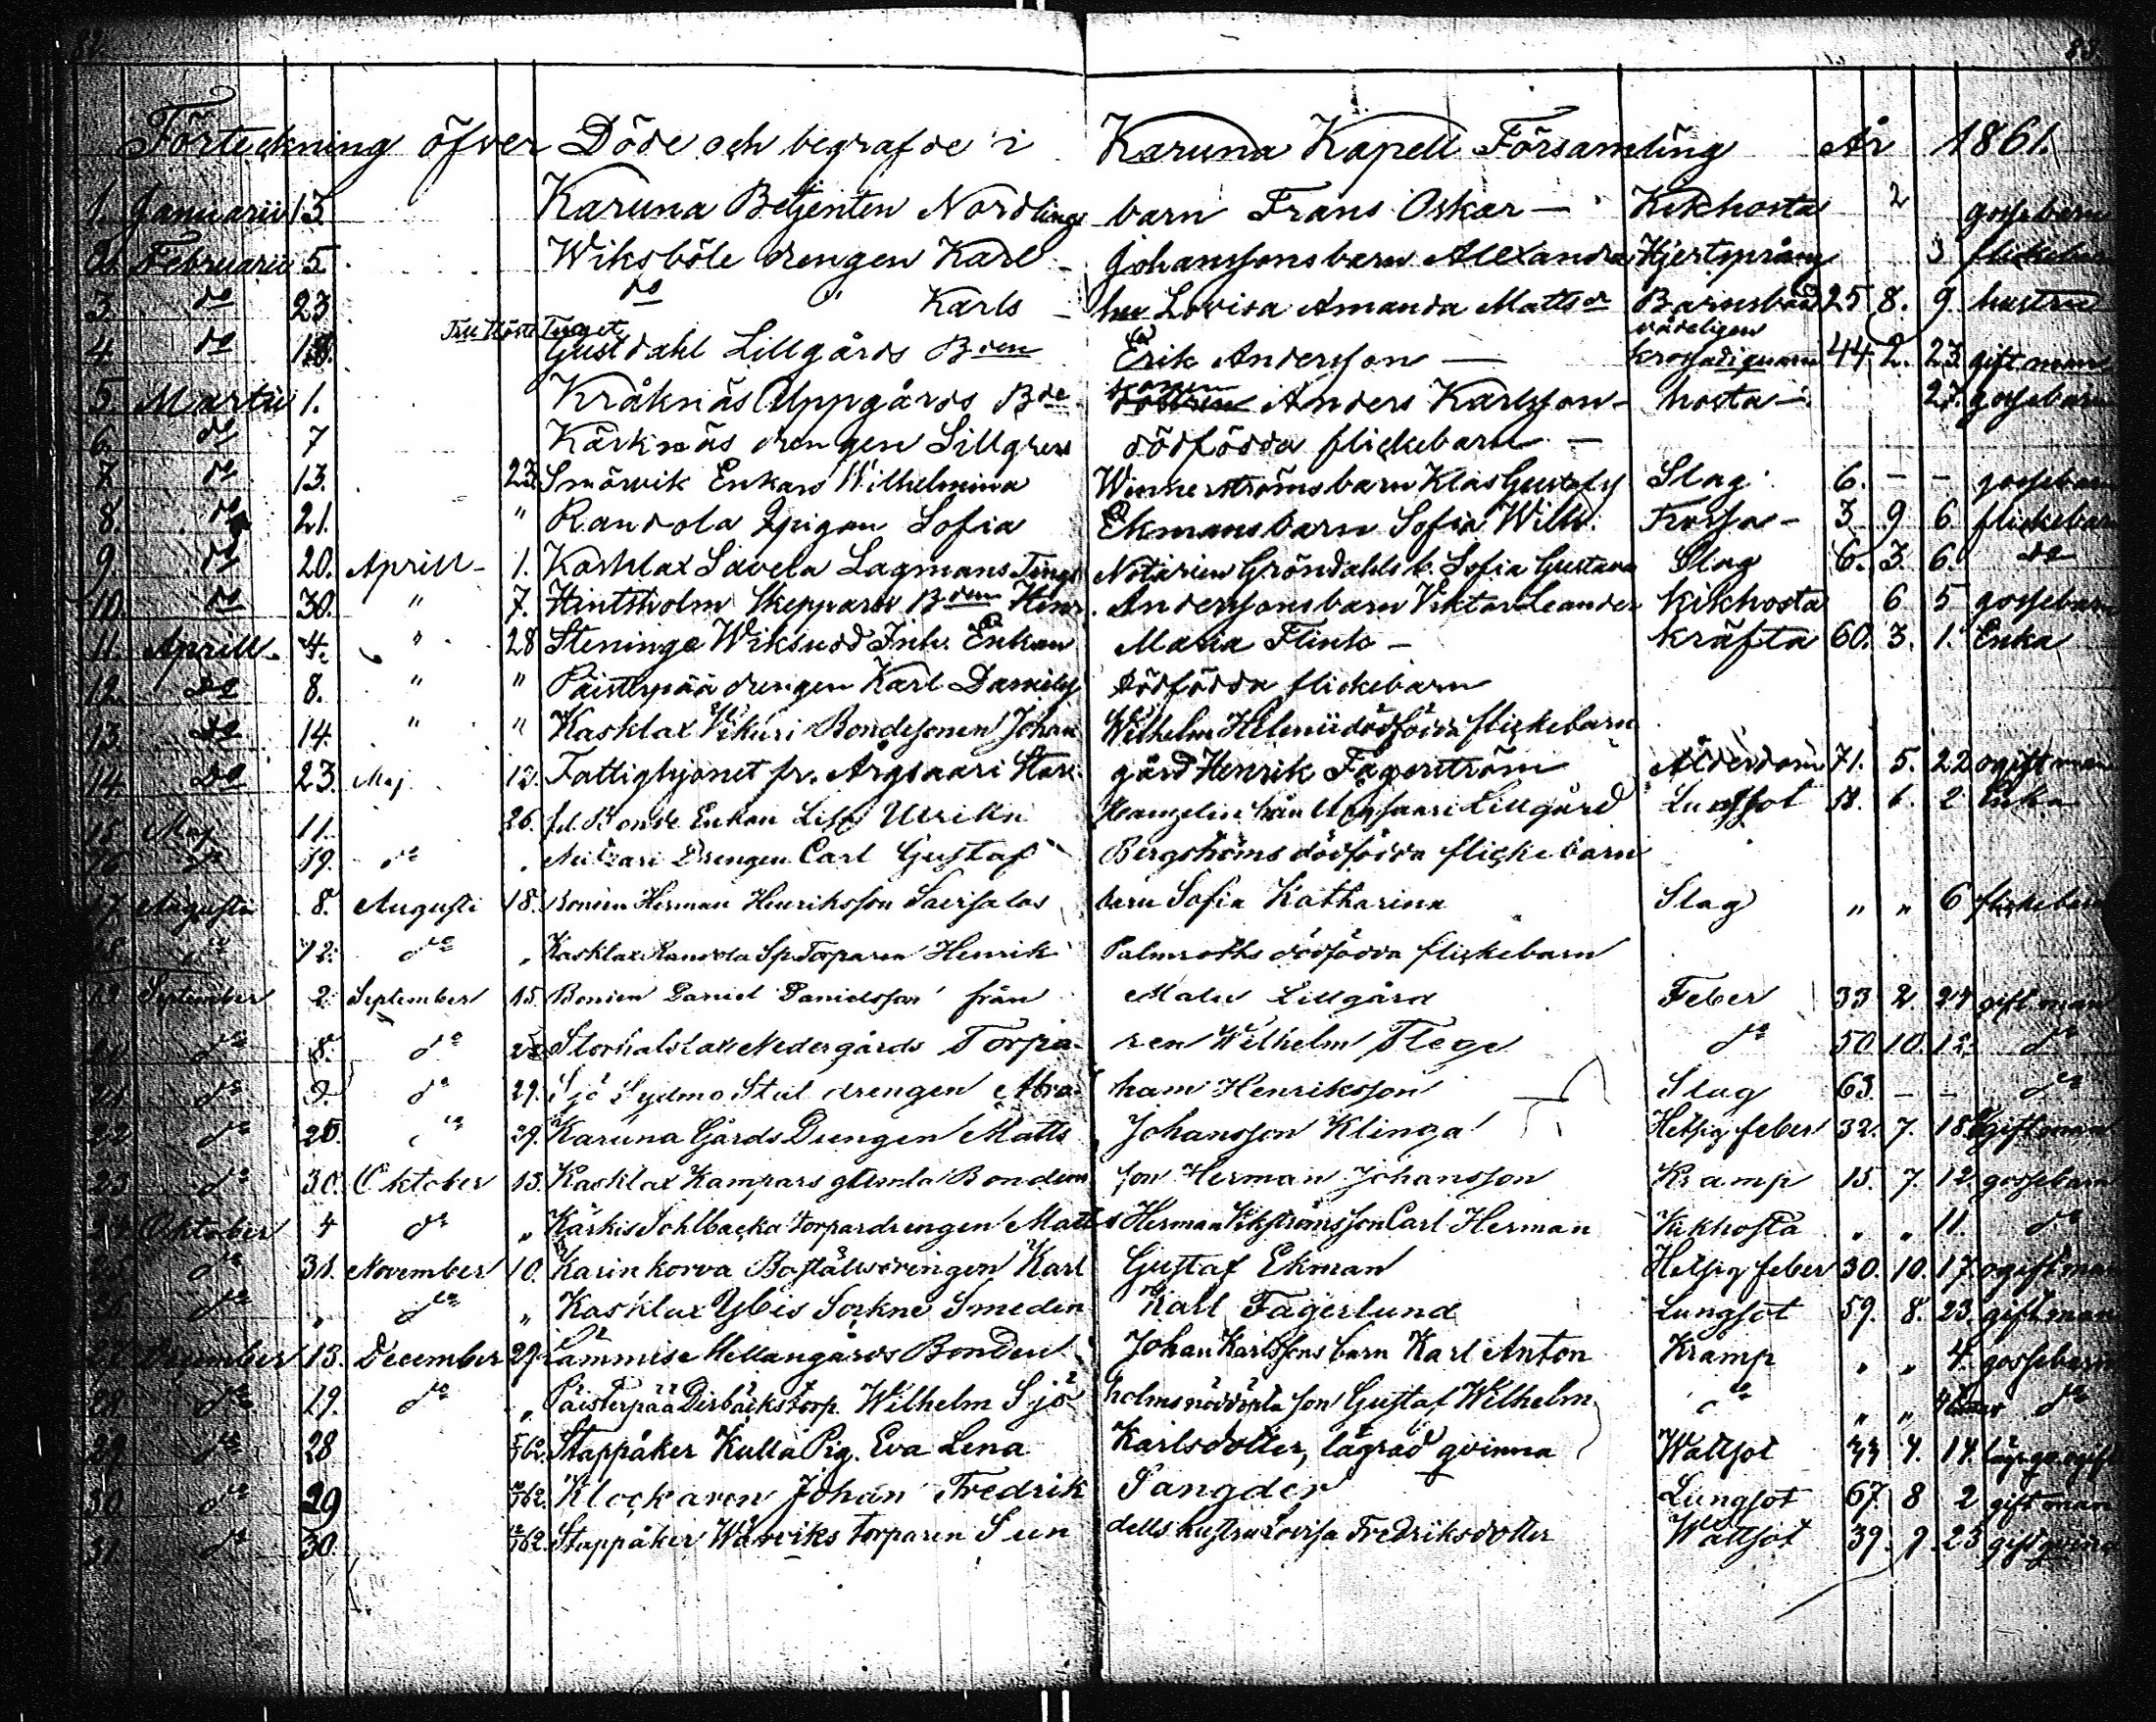 Förteckning öfver Döde och begrafde i Karuna Kapell Församling År 1861.
1. Januarii 13. Karuna Betjenten Nordlings barn Frans Oskar — Kikhosta 2 gossebarn
2. Februarii 5. Wiksböle drengen Karl Johanssons barn Alexandra Hjertsprång 3 flickebarn
3. do 23 do " Karls hu Lovisa Amanda Mattsdr Barnsbörd 25 8. 9. hustru
Tuget vådeligen
4. do 18. Gustdahl Lillgårds Bden Erik Andersson — krossad 44. 2. 23. gift man
sonen
5. Martii 1. Kråknäs Uppgårds Bde Anders Karlsson - hosta - 27. gossebarn
6. do 7 Kärknäs drengen Lillgrens dödfödda flickebarn —
7. do 13. 23. Smörvik Enkans Wilhelmina Winnerströms barn Klas Gustafs Slag 6. - - gossebarn
8. do 21. " Randola Spigan Sofia Ekmans barn Sofia Wilh. Frossa - 3 9 6 flickebarn
9. do 20. Aprill - 1. Kasklax Savela Lagmans Tings Notarien Gröndahls b. Sofia Gustava Slag 6. 3. 6. do
10. do 30. " 7. Hintsholm Skeppars Bden Henr. Anderssons barn Viktor Leander Kikhosta 6 5 gossebarn
11. Aprill 4. " 28 Steninge Wiksudd Inh. Enkan Maria Flink - Kräfta 60. 3. 1. Enka
12. do 8. " " Päisterpää drengen Karl Daniels dödfödda flickebarn
13. do 14. " " Kasklax Vikuri Bondesonen Johan Wilhelm Helenii dödfödda flickebarn
14. do 23. Maj 12. Fattighjonet fr. Årgsaari Stor gård Henrik Fagerström Ålderdom 71. 5. 22 ogift man
15. Maj 11. 26. fd. Bonde Enkan Lisa Ulrika från Lillgård Lungsot 58. 6. 2 Enka
16 do 19. do . Drengen Carl Gustaf Bergströms dödfödda flickebarn
17 Augusti 8. Augusti 18. Bonden Herman Henriksson Savisalos barn Sofia Katharina Slag " " 6 flickebarn
18. do 12. do " Kasklax Randola Sp. Torparen Henrik Palmroths dödfödda flickebarn
19 September 2. September 15. Bonden Daniel Danielsson från Malu Lillgård Feber 33 2. 24 gift man
20 do 8. do 22 Storhalslax Nedergårds Torpa ren Wilhelm Flege do 50 10. 12. do
21 do 9. do 29. Sjö Sydmo Stal drengen Abra ham Henriksson Slag 63. - - do
22 do 25. do 29. Karuna Gårds Drengen Matts Johansson Klinga Hetsig feber 32. 7. 18. gift man
23 do 30. Oktober 13. Kasklax Kampars gamla Bonden son Herman Johansson Kramp 15. 7. 12. gossebarn
24 Oktober 4 do " Kärkis Sohlbacka torpardrengen Matts Herman Vikströms son Carl Herman Kikhosta " " 11. do
25 do 31. November 10. Karinkorva Boställsdrengen Karl Gustaf Ekman Hetsig feber 30. 10. 17. ogift man
26 do " do " Kasklax Ybis Sockne Smeden Karl Fagerlund Lungsot 59. 8. 23. gift man
27 December 13. December 29. Lammise Mellangårds Bonden Johan Karlssons barn Karl Anton Kramp " " 4. gossebarn
28 do 19. do " Päisterpää Dirbäcks torp. Wilhelm Sjö holms nöddöpta son Gustaf Wilhelm do " " 4 do
29 do 28 5/1 62. Stappåker Kulla Pig. Eva Lena Karlsdotter, lägrad qvinna Wattsot 44 4. 14.
30 do 29 /1 62. Klockaren Johan Fredrik Sangder Lungsot 67 8 2 gift man
31 do 30. 12/1 62. Stappåker Warviks torparen Sun dells hustru Lovisa Fredriksdotter Wattsot 39. 9. 23 gift qvinna